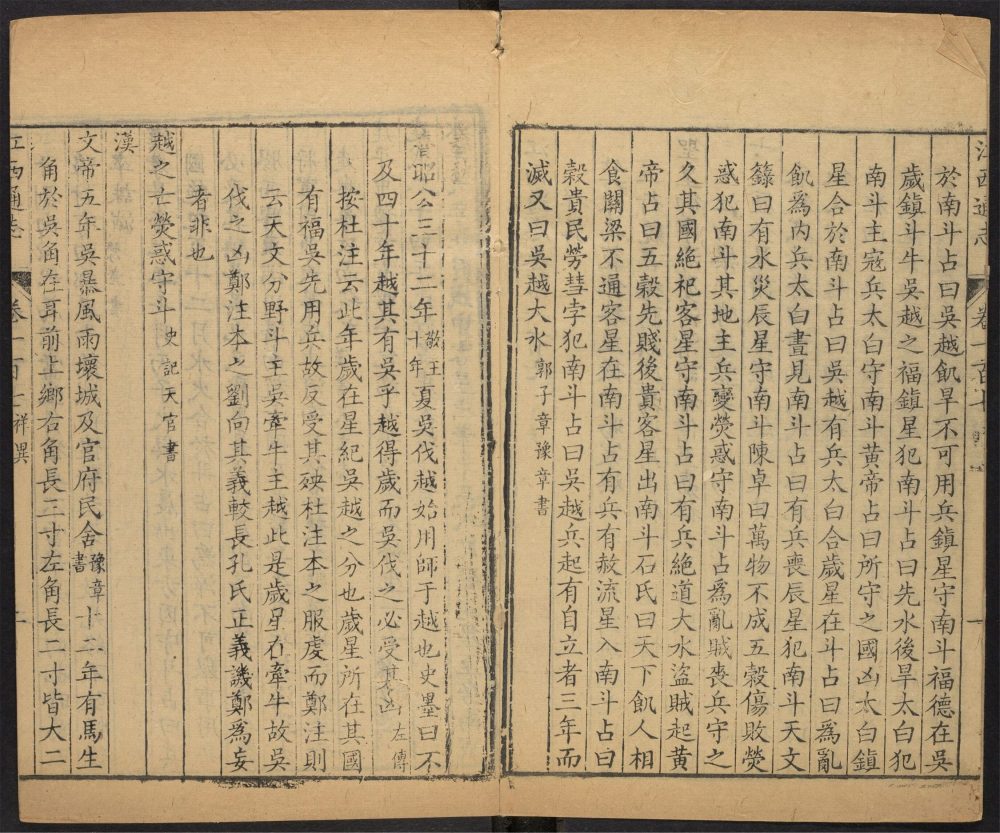 江西通志 卷一百七 祥異 一
於南斗占曰吳越飢旱不可用兵鎮星守南斗福德在吳
歲鎮斗牛吳越之福鎮星犯南斗占曰先水後旱太白犯
南斗主寇兵太白守南斗黄帝占曰所守之國凶太白鎮
星合於南斗占曰吳越有兵太白合歲星在斗占曰爲亂
飢爲內兵太白晝見南斗占曰有兵喪辰星犯南斗天文
錄曰有水災辰星守南斗陳卓曰萬物不成五穀傷敗熒
惑犯南斗其地主兵變熒惑守南斗占爲亂賊喪兵守之
久其國絶祀客星守南斗占曰有兵絶道大水盜賊起黄
帝占曰五穀先賤後貴客星出南斗石氏曰天下飢人相
食關梁不通客星在南斗占有兵有赦流星入南斗占曰
穀貴民勞彗孛犯南斗占曰吳越兵起有自立者三年而
滅又曰吳越大水郭子章豫章書
昭公三十二年敬王十年夏吳伐越始用師于越也史墨曰不
及四十年越其有吳乎越得歲而吳伐之必受其凶左傳
按杜注云此年歲在星紀吳越之分也歲星所在其國
有福吳先用兵故反受其殃杜注本之服虔而鄭注則
云天文分野斗主吳牽牛主越此是歲星右牽牛故吳
伐之凶鄭注本之劉向其義較長孔氏正義譏鄭爲妄
者非也
越之亡熒惑守斗史記天官書
漢
文帝五年吳暴風雨壞城及官府民舍豫章書十二年有馬生
角於吳角在耳前上鄉右角長三寸左角長二寸皆大二
江西通志 卷一百七 祥異 二